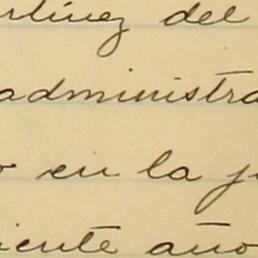 rtínez del
administra
o en la j
iente año